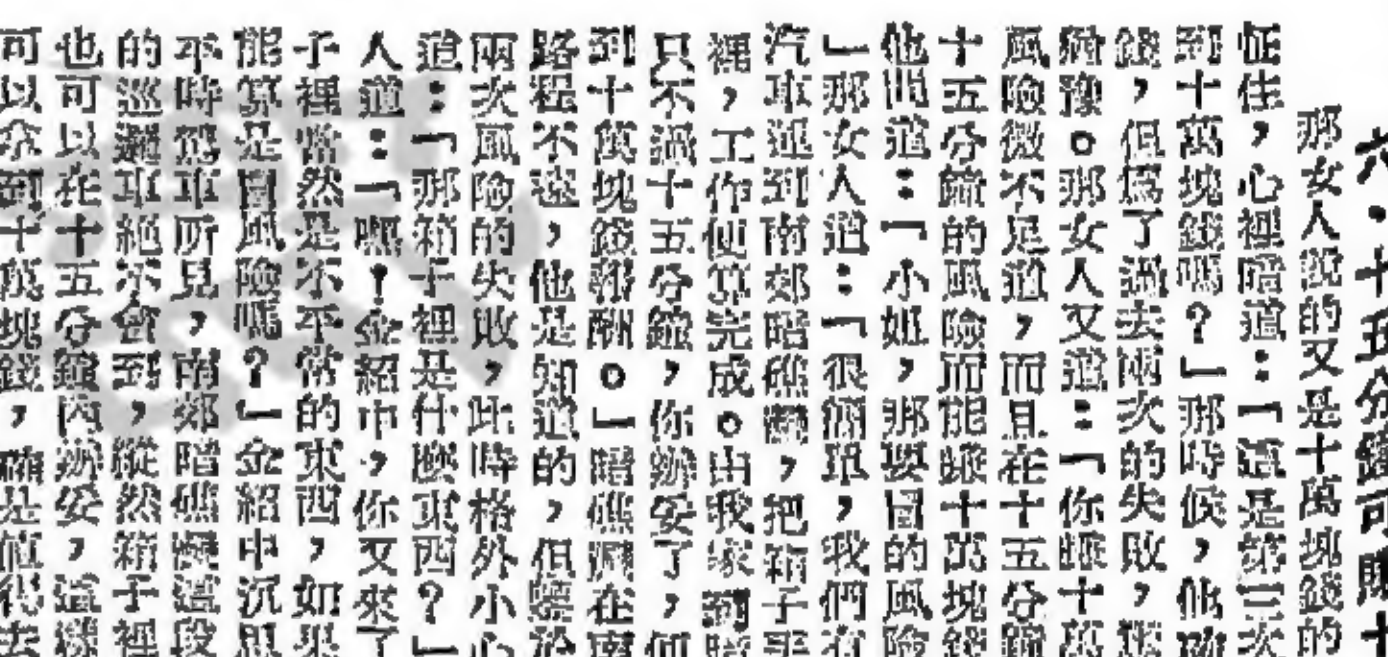 六·十五分鐘可賺十
那女人說的又是十萬塊錢的
怔住，心裡暗道：「這是第三次
到十萬塊錢嗎？」那時候，他確
錢，但爲了過去兩次的失敗，
猶豫。那女人又道：「你賺十萬
風險微不足道，而且在十五分鐘
十五分鐘的風險而能賺十萬塊錢
他問道：「小姐，那要冒的風險
」那女人道：「很簡單，我們有
汽車送到南郊暗礁灣，把箱子
裡，工作便算完成。由我家到暗
只不過十五分鐘，你辦妥了，
到十萬塊錢報酬。」暗礁灣在南
路程不遠，他是知道的，但鑒於
兩次風險的失敗，此時格外小心
道：「那箱子裡是什麼東西？」
人道：「嘿！金紹中，你又來了
子裡當然是不平常的東西，如果
能算是冒風險嗎？」金紹中沉思
平時駕車所見，南郊暗礁灣這段
的巡邏車絕不會到，縱然箱子裡
也可以在十五分鐘內辦妥，這樣
可以拿到十萬塊錢，確是值得去